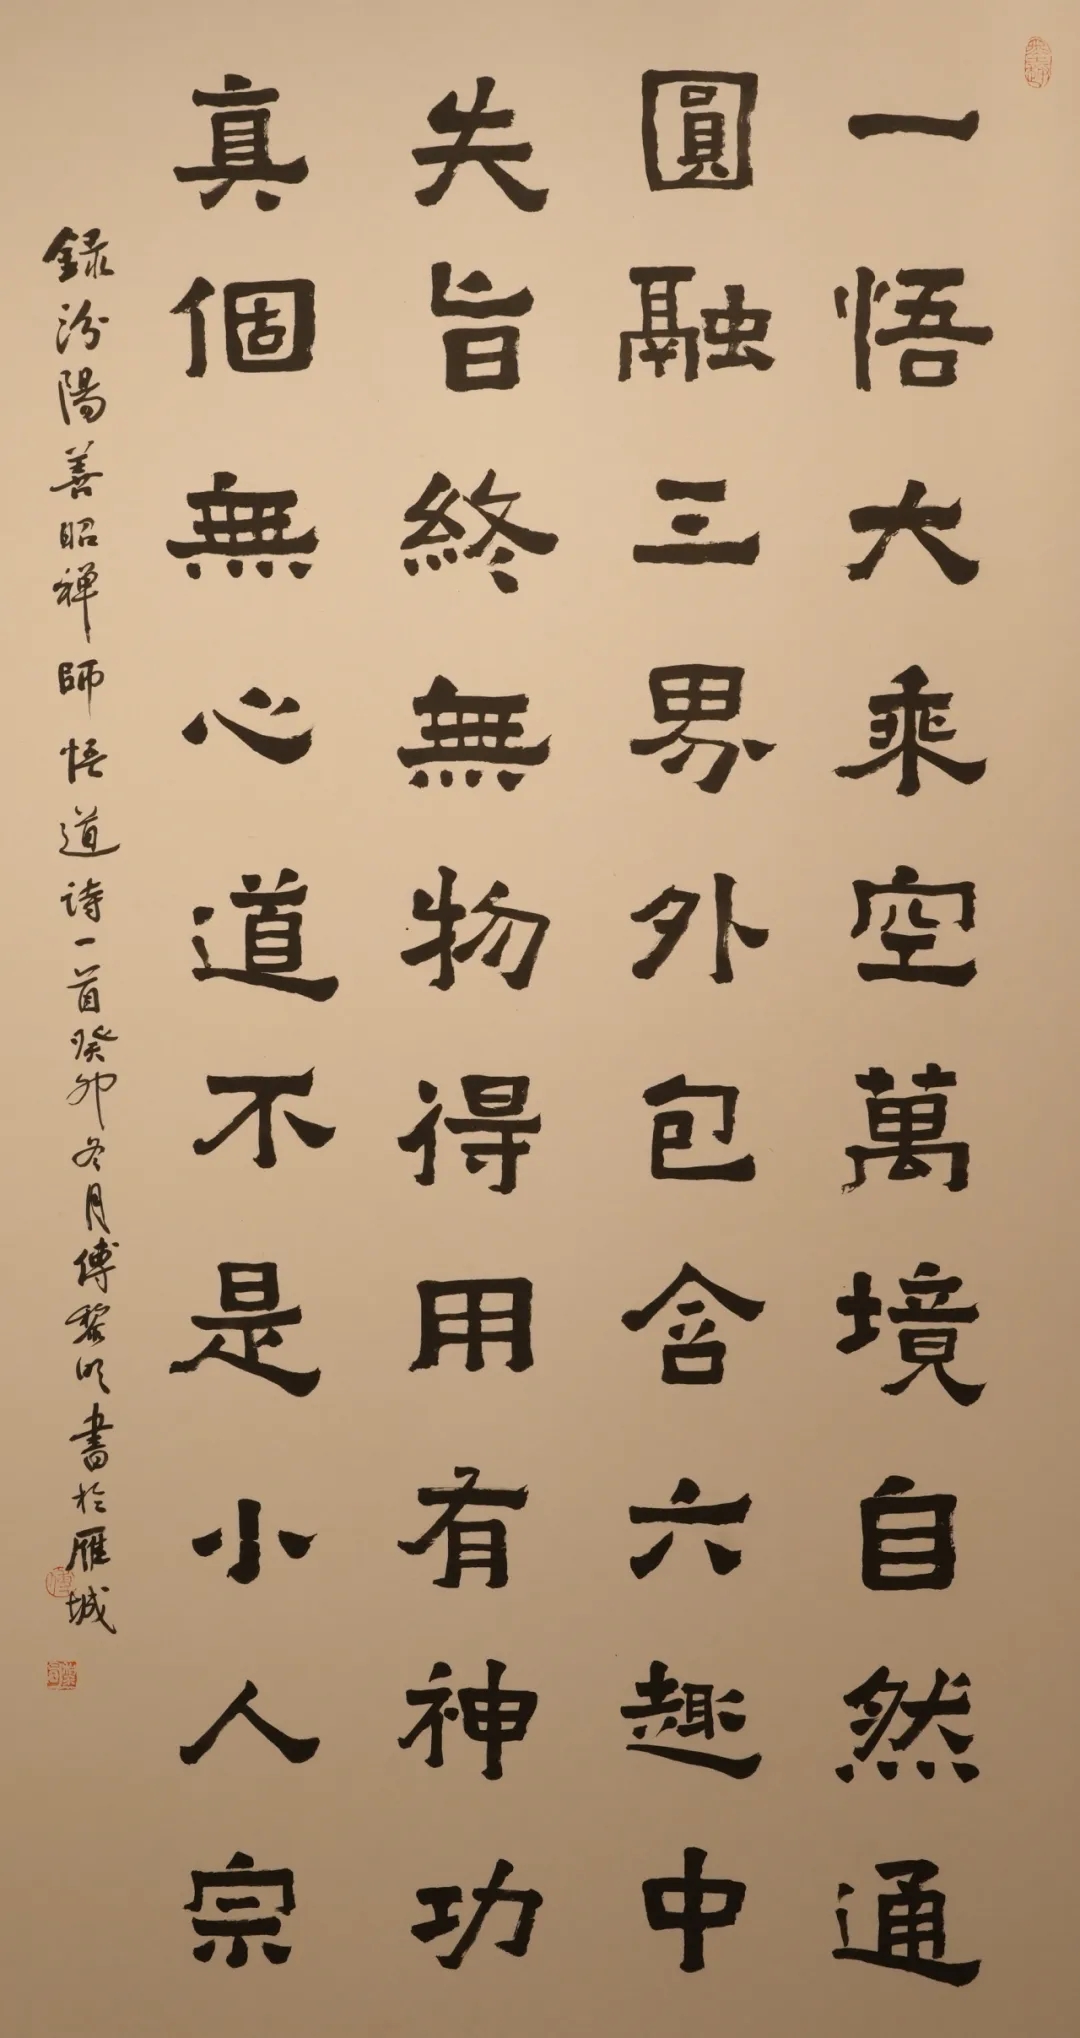 一悟大乘空萬境自然通
圓融三界外包含六趣中
失旨終無物得用有神功
真個無心道不是小人宗
録汾陽善昭禅師悟道诗一首癸卯冬月傅黎明書於雁城